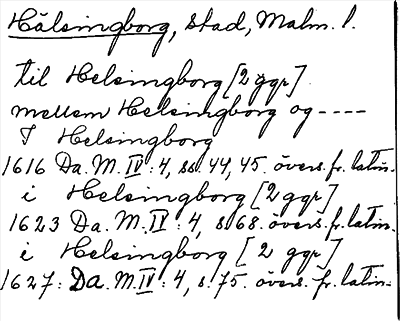 Hälsingborg, stad, Malm. l.
til Helsingborg [2 ggr]
mellem Helsingborg og ----
I Helsingborg
1616 Da. M. IV: 4, ss. 44, 45. övers. fr. latin.
i Helsingborg [2 ggr]
1623 Da. M. IV: 4, s. 68. övers. fr. latin.
i Helsingborg [2 ggr]
1627: Da. M. IV: 4, s. 75. övers. fr. latin.